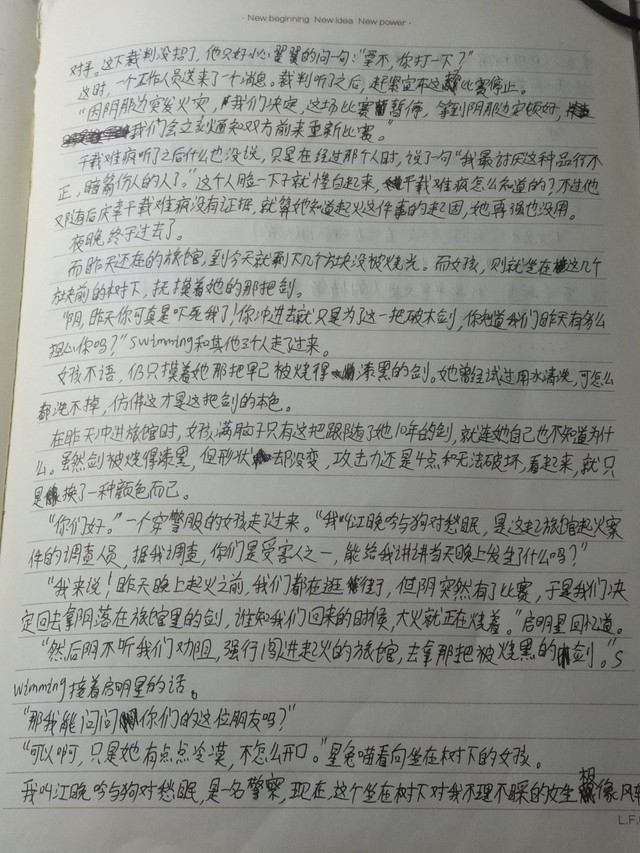 · New beginning New idea New power ·
对手。这下裁判没招了，他只好小心翼翼的问一句：“要不，你打一下？”
这时，一个工作人员送来了一个消息。裁判听了之后，赶紧宣布这比赛停止。
“因阴那边突发火灾，我们决定，这场比赛暂停，等到阴那边安顿好，
我们会立刻通知双方前来重新比赛。”
千载难疯听了之后什么也没说，只是在经过那个人时，说了一句“我最讨厌这种品行不
正，暗箭伤人的人了。”这个人脸一下子就惨白起来，千载难疯怎么知道的？不过他
又随后庆幸千载难疯没有证据，就算她知道起火这件事的起因，她再强也没用。
夜晚，终于过去了。
而昨天还在的旅馆，到今天就剩下几个方块没被烧光。而女孩，则就坐在这几个
方块前的树下，抚摸着她的那把剑。
“阴，昨天你可真是吓死我了！你冲进去就只是为了这一把破木剑，你知道我们昨天有多么
担心你吗？”swimming和其他3个人走了过来。
女孩不语，仍只摸着她那把早已被烧得漆黑的剑。她曾经试过用水清洗，可怎么
都洗不掉，仿佛这才是这把剑的本色。
在昨天冲进旅馆时，女孩满脑子只有这把跟随了她10年的剑，就连她自己也不知道为什
么。虽然剑被烧得漆黑，但形状却没变，攻击力还是4点和无法破坏，看起来，就只
是换了一种颜色而已。
“你们好。”一个穿警服的女孩走了过来。“我叫江晚吟与狗对愁眠，是这起旅馆起火案
件的调查人员，据我调查，你们是受害人之一，能给我讲讲当天晚上发生了什么吗？”
“我来说！昨天晚上起火之前，我们都在逛街，但阴突然有了比赛，于是我们决
定回去拿阴落在旅馆里的剑，谁知我们回来的时候，大火就正在烧着。”启明星回忆道。
“然后阴不听我们劝阻，强行闯进起火的旅馆，去拿那把被烧黑的剑。”s
wimming接着启明星的话。
“那我能问问你们的这位朋友吗？”
“可以啊，只是她有点点冷漠，不怎么开口。”星兔喵看向坐在树下的女孩。
我叫江晚吟与狗对愁眠，是一名警察，现在，这个坐在树下对我不理不睬的女生想像风
L.F.